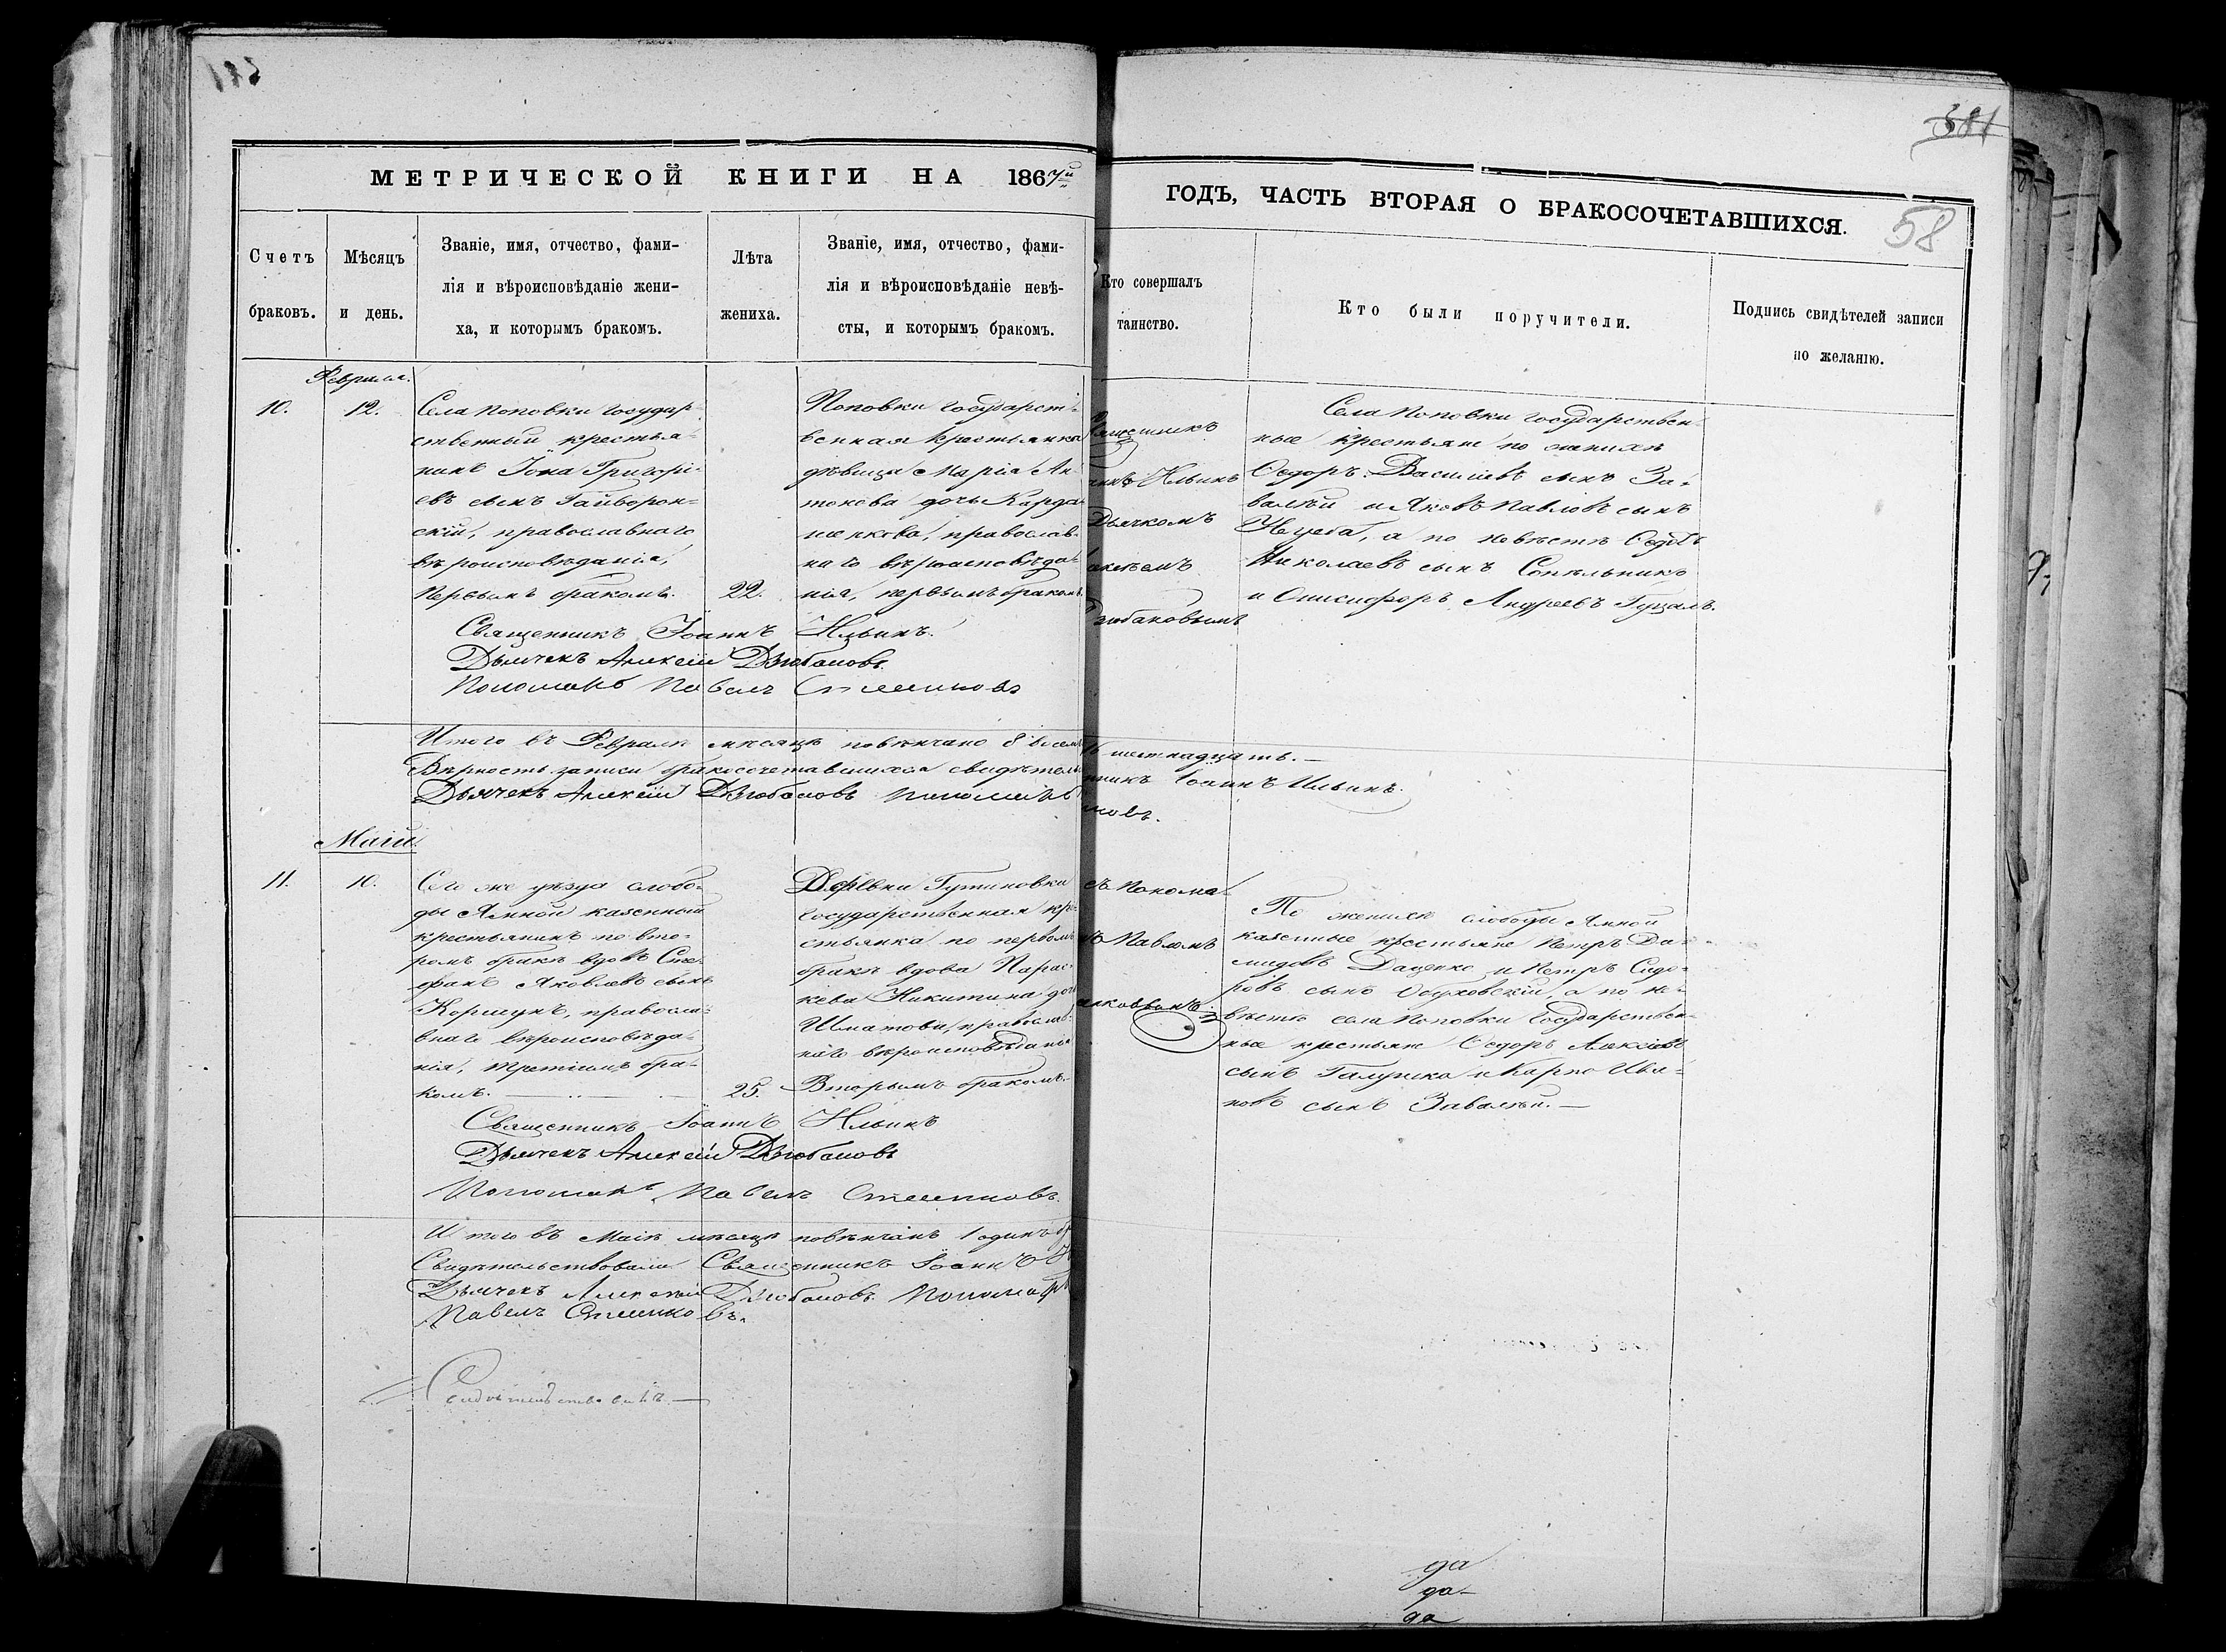 381
МЕТРИЧЕСКОЙ КНИГИ НА 1867й
ГОДЪ, ЧАСТЬ ВТОРАЯ О БРАКОСОЧЕТАВШИХСЯ.
58
Счетъ
браковъ.
Мѣсяцъ
и день.
Званіе, имя, отчество, фами-
лія и вѣроисповѣданіе жени-
ха, и которымъ бракомъ.
Лѣта
жениха.
Званіе, имя, отчество, фами-
лія и вѣроисповѣданіе невѣ-
сты, и которымъ бракомъ.
Кто совершалъ
таинство.
Кто были поручители.
Подпись свидѣтелей записи
по желанію.
Февраля.
10.
12.
Села Поповки государ-
ственный крестья-
нинъ Іона Григорі-
евъ сынъ Гайворон-
скій, православнаго
вѣроисповѣданія,
первымъ бракомъ.
22.
Поповки государст-
венная крестьянка
дѣвица Марія Ан-
тонова дочь
православ-
наго вѣроисповѣда-
нія, первымъ бракомъ.
Ильинъ
Дьячкомъ
Села Поповки государствен-
ные крестьяне по женихѣ
Ѳедоръ Василіевъ сынъ За-
валѣй и Яковъ Павловъ сынъ
а по невѣстѣ
Николаевъ сынъ
и Онисифоръ Андреевъ
Священникъ Іоаннъ Ильинъ.
Дьячекъ Алексій Дзюбановъ
Пономарь Павелъ
Итого въ Февралѣ мѣсяцѣ повѣнчано 8 восемь
16 шестнадцать.
Вѣрность записи бракосочетавшихся свидѣтель
нникъ Іоаннъ Ильинъ.
Дьячекъ Алексій Дзюбановъ Пономарь
новъ.
Маій
11.
10.
Сего же уѣзда слобо-
ды Ямной казенный
крестьянинъ по вто-
ромъ бракѣ вдовъ Сте-
фанъ Яковлевъ сынъ
Коршунъ, правосла-
внаго вѣроисповѣда-
нія, третіимъ бра-
комъ.
25.
Деревни
государственная кре-
стьянка по первомъ
бракѣ вдова Парас-
кева Никитина дочь
православ-
наго вѣроисповѣданія
Вторымъ бракомъ.
съ Понома-
Павломъ
По женихѣ слободы Ямной
казенные крестьяне Петръ
Даценко и Петръ Сидо-
ровъ сынъ Обуховскій, а по не-
вѣстѣ села Поповки государствен-
ные крестьяне Ѳедоръ Алексіевъ
сынъ Галушка и Карпъ Ива-
новъ сынъ Завалѣй.
Священникъ Іоаннъ Ильинъ
Дьячекъ Алексій Дзюбановъ
Пономарь Павелъ
Итого въ Маіѣ мѣсяцѣ повѣнчанъ 1 одинъ
Свидѣтельствовали Священникъ Іоаннъ
Дьячекъ Алексій Дзюбановъ Пономарь
Павелъ
да
да
да